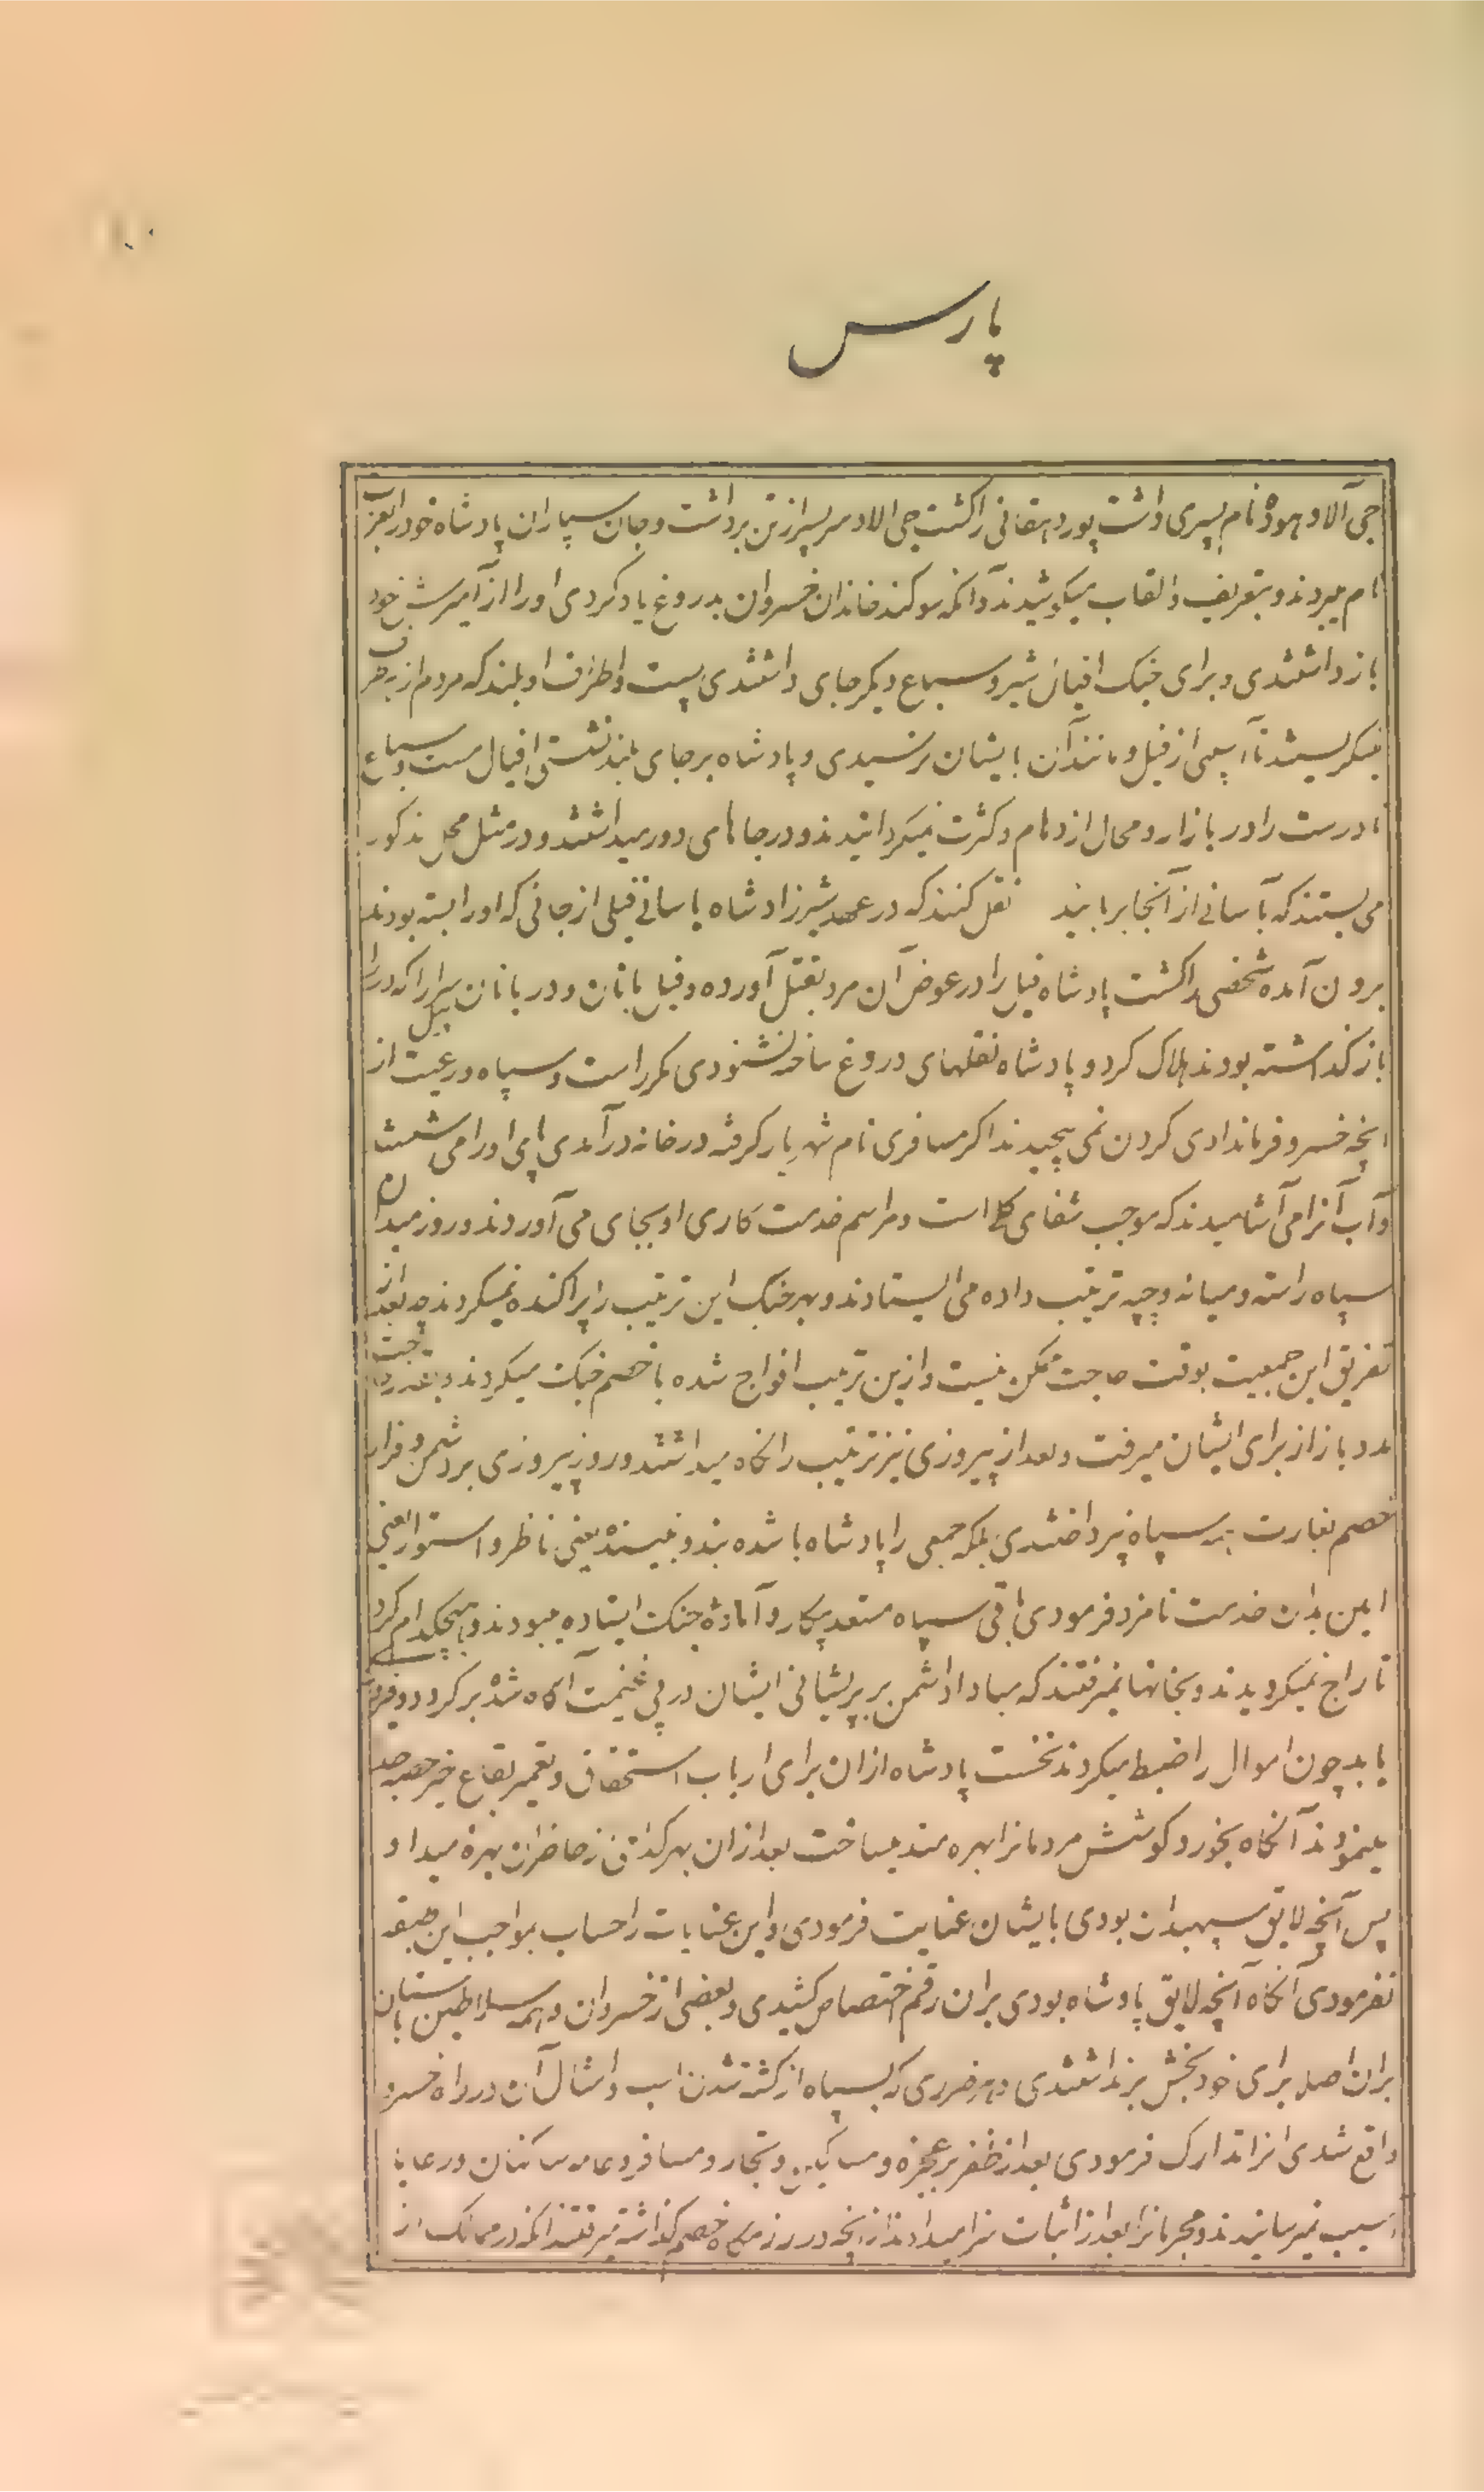 پارس
جی آلاد هموده نام پسری داشت پور دهقانی را کشت جی الاد سر پسر از تن برداشت و جان سپاران پادشاه خود را بعزت
نام میبردند و بتعریف و القاب میکوشیدند و آنکه سوکند خاندان خسروان بدروغ یاد کردی او را از آمیزش خود
باز داشتندی و برای جنک افیال شیر و سباع دیکر جای داشتندی پست و اطراف او بلند که مردم از هر طرف
نیکریستند تا آسیبی از فیل و مانند آن بایشان نرسیدی و پادشاه بر جای بلند نشستی و افیال مست و سباع
نادرست را در بازار و محال ازدحام و کثرت نمیکردانیدند و در جاهای دور میداشتند و در مثل محل مذکور
می بستند که بآسانی از آنجا بربایند نقل کنند که در عهد شیرزاد شاه یاسانی فیلی از جائی که او را بسته بودند
برون آمده شخصی را کشت پادشاه فیل را در عوض آن مرد بقتل آورده و فیل بانان و دربانان پیل سرا را که در را
باز کذاشته بودند هلاک کرد و پادشاه نقلهای دروغ ساخته نشنودی مکر راست و سپاه و رعیت از
آنچه خسرو فرماندادی کردن نمی پیچیدند اکر مسافری نام شهریار کرفته در خانه در آمدی پای او را می شست
و آب آنرا می آشامیدند که موجب شفای کلی است و مراسم خدمت کاری او بجای می آوردند و روز میدان
سپاه راسته و میانه و چپه ترتیب داده می ایستادند و بهر جنک این ترتیب را پراکنده نمیکردند چه بعد از
تفریق این جمعیت بوقت حاجت ممکن نیست و ازین ترتیب افواج شده با خصم جنک میکردند و بقدر حاجت
مدد باز از برای ایشان میرفت و بعد از پیروزی نیز ترتیب را نکاه میداشتند و روز پیروزی بر دشمن و فرار
خصم بغارت همه سپاه نپرداختندی بلکه جمعی را پادشاه با شده بند و نبیسنده یعنی ناظر و استوار یعنی
امین بدان خدمت نامزد فرمودی باقی سپاه مستعد پیکار و آماده جنک ایستاده میبودند و هیچکدام کرد
تاراج نمیکردیدند و بخانها نمیرفتند که مبادا دشمن بر پریشانی ایشان در پی غنیمت آکاه شده برکردد و فیروزی
یابد چون اموال را ضبط میکردند نخست پادشاه از ان برای ارباب استحقاق و تعمیر بقاع خیر حصه جدا
مینمودند آنکاه بخورد کوشش مردمانرا بهره مند میساخت بعد از ان بهر کدام از حاضران بهره میداد
پس آنچه لایق سپهبدان بودی بایشان عنایت فرمودی و این عنایات را حساب بمواجب این طبقه
نفرمودی آنکاه آنچه لایق پادشاه بودی بران رقم اختصاص کشیدی و بعضی از خسروان و همه سلاطین باستان
بران اصلا برای خود بخش برنداشتندی و هر ضرری که بسپاه از کشته شدن اسب و امثال آن در راه خسرو
واقع شدی انرا تدارک فرمودی بعد از ظفر بر عجزه و مساکین و تجار و مسافر و عامه ساکنان و رعایا
آسیب نمیرسانیدند و مجرمانرا بعد از اثبات سزا میدادند از آنچه در رزمکاه خصم کذاشته میرفتند آنکه در ممالک از